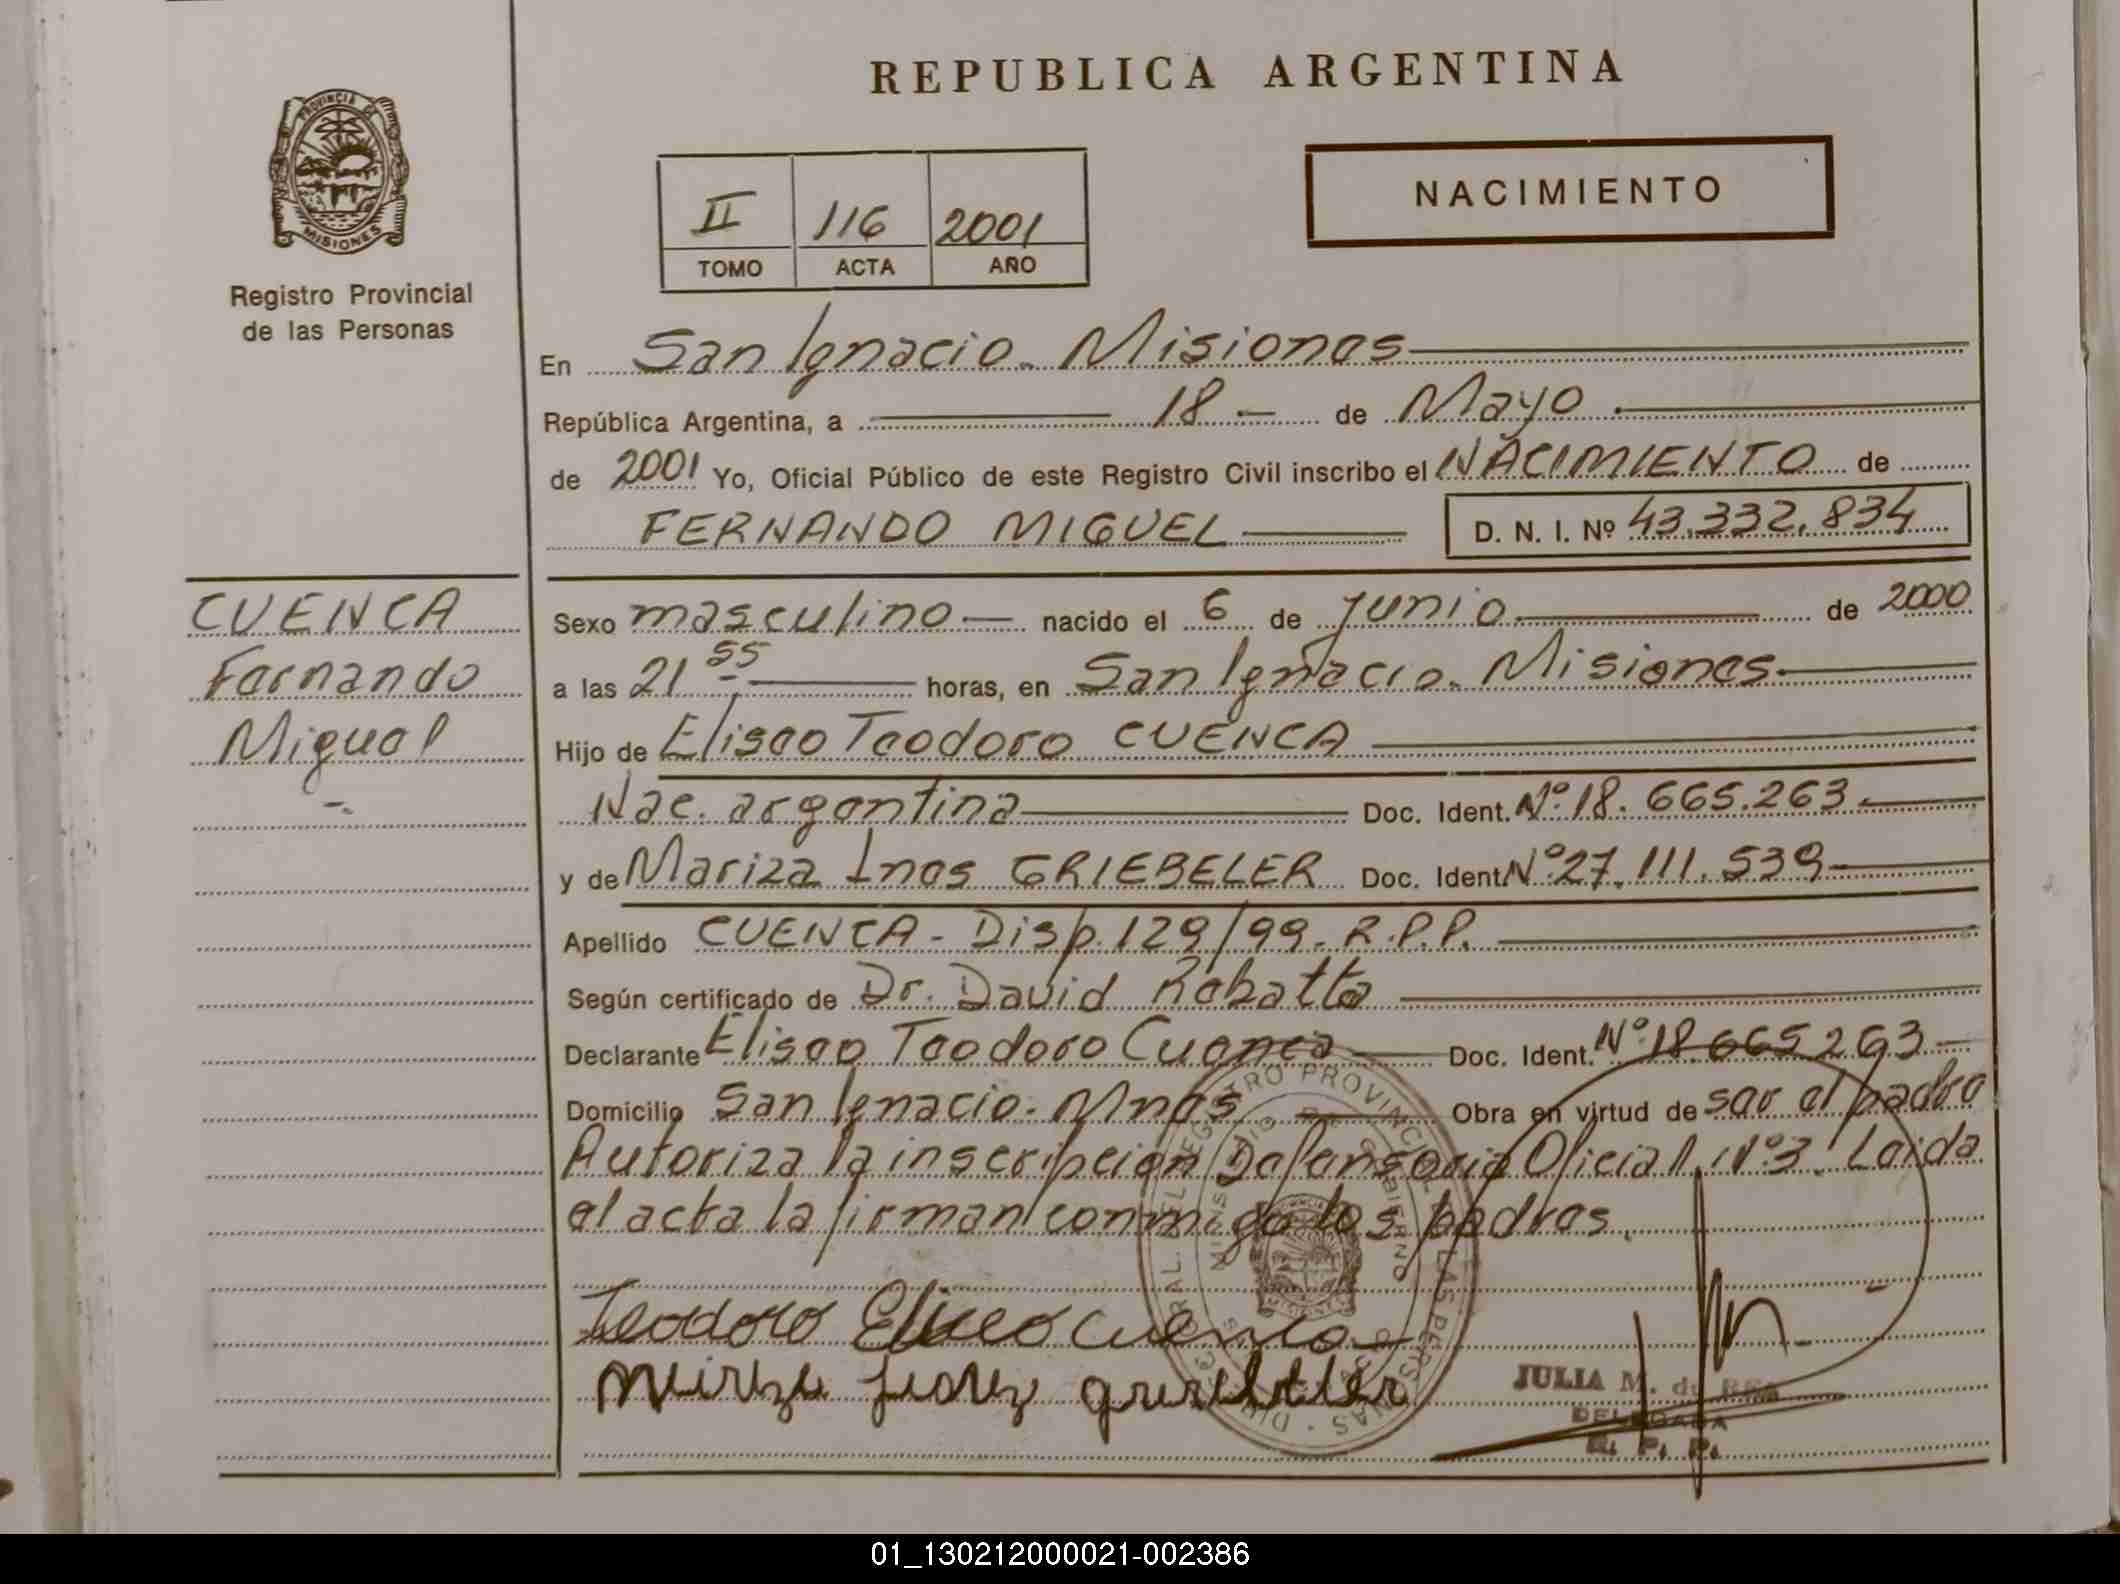 REPUBLICA ARGENTINA
PROVINCIA DE
MISIONES
Registro Provincial
de las Personas
NACIMIENTO
II 116 2001
TOMO ACTA AÑO
En San Ignacio. Misiones
República Argentina, a 18 de Mayo
de 2001 Yo, Oficial Público de este Registro Civil inscribo el NACIMIENTO de
FERNANDO MIGUEL D. N. I. Nº 43.332.834
CUENCA
Fernando
Miguel
Sexo masculino nacido el 6 de junio de 2000
a las 21 55 horas, en San Ignacio. Misiones
Hijo de Eliseo Teodoro CUENCA
Nac. argentina Doc. Ident. Nº 18.665.263
y de Mariza Ines GRIEBELER Doc. Ident. Nº 27.111.539
Apellido CUENCA - Disp. 129/99. R.P.P.
Según certificado de Dr. David
Declarante Eliseo Teodoro Cuenca Doc. Ident. Nº 18.665263
Domicilio San Ignacio. Mnes Obra en virtud de ser el padre
Autoriza la inscripción Defensoria Oficial Nº3. Leida
el acta la firman conmigo los padres.
Teodoro Eliseo Cuenca
JULIA M. de
DELEGADA
R. P. P.
01_130212000021-002386